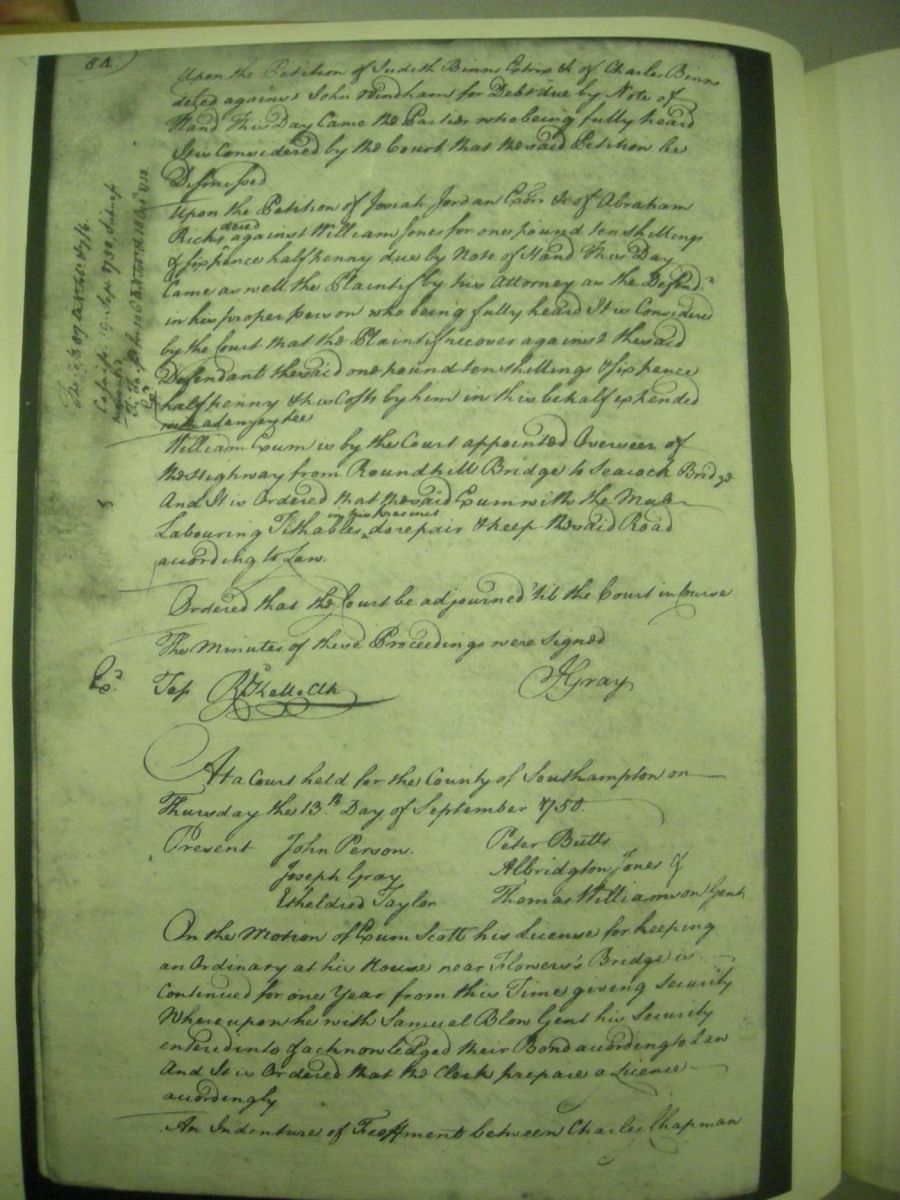 84)
Upon the Petition of Judith Binns Extrix &c of Charles Binns
deced against John Windham for Debt due by Note of
Hand This Day Came the Parties who being fully heard
It is Considered by the Court that the said Petition be
Dismissed
Upon the Petition of Josiah Jordan Exor &c of Abraham
Ricks deced against William Jones for one pound ten shillings
& six pence half penny due by Note of Hand This Day
Came as well the Plaintif by his Attorney as the Defend.t
in his proper person who being fully heard It is Considered
by the Court that the Plaintif recover against the said
Defendant the said one pound ten shillings & six pence
half penny & his Costs by him in this behalf expended
William Exum is by the Court appointed Overseer of
the Highway from Roundhill Bridge to Seacock Bridge
And It is Ordered that the said Exum with the Male
Labouring Tithables in his Precinct do repair & keep the said Road
according to Law.
Ordered that the Court be adjourned 'till the Court in Course
The Minutes of these Proceedings were Signed
Ex.d Test R.d Kello Clk JGray
At a Court held for the County of Southampton on
Thursday the 13.th Day of September 1750.
Present John Person. Peter Butts
Joseph Gray Albridgton Jones &
Etheldred Taylor Thomas Williamson Gent.
On the Motion of Exum Scott his License for keeping
an Ordinary at his House near Flowers's Bridge is
Continued for one Year from this Time giving Security
Whereupon he with Samuel Blow Gent his Security
entered into & acknowledged their Bond according to Law
And It is Ordered that the Clerk prepare a Licence
accordingly
An Indenture of Feoffment between Charles Chapman